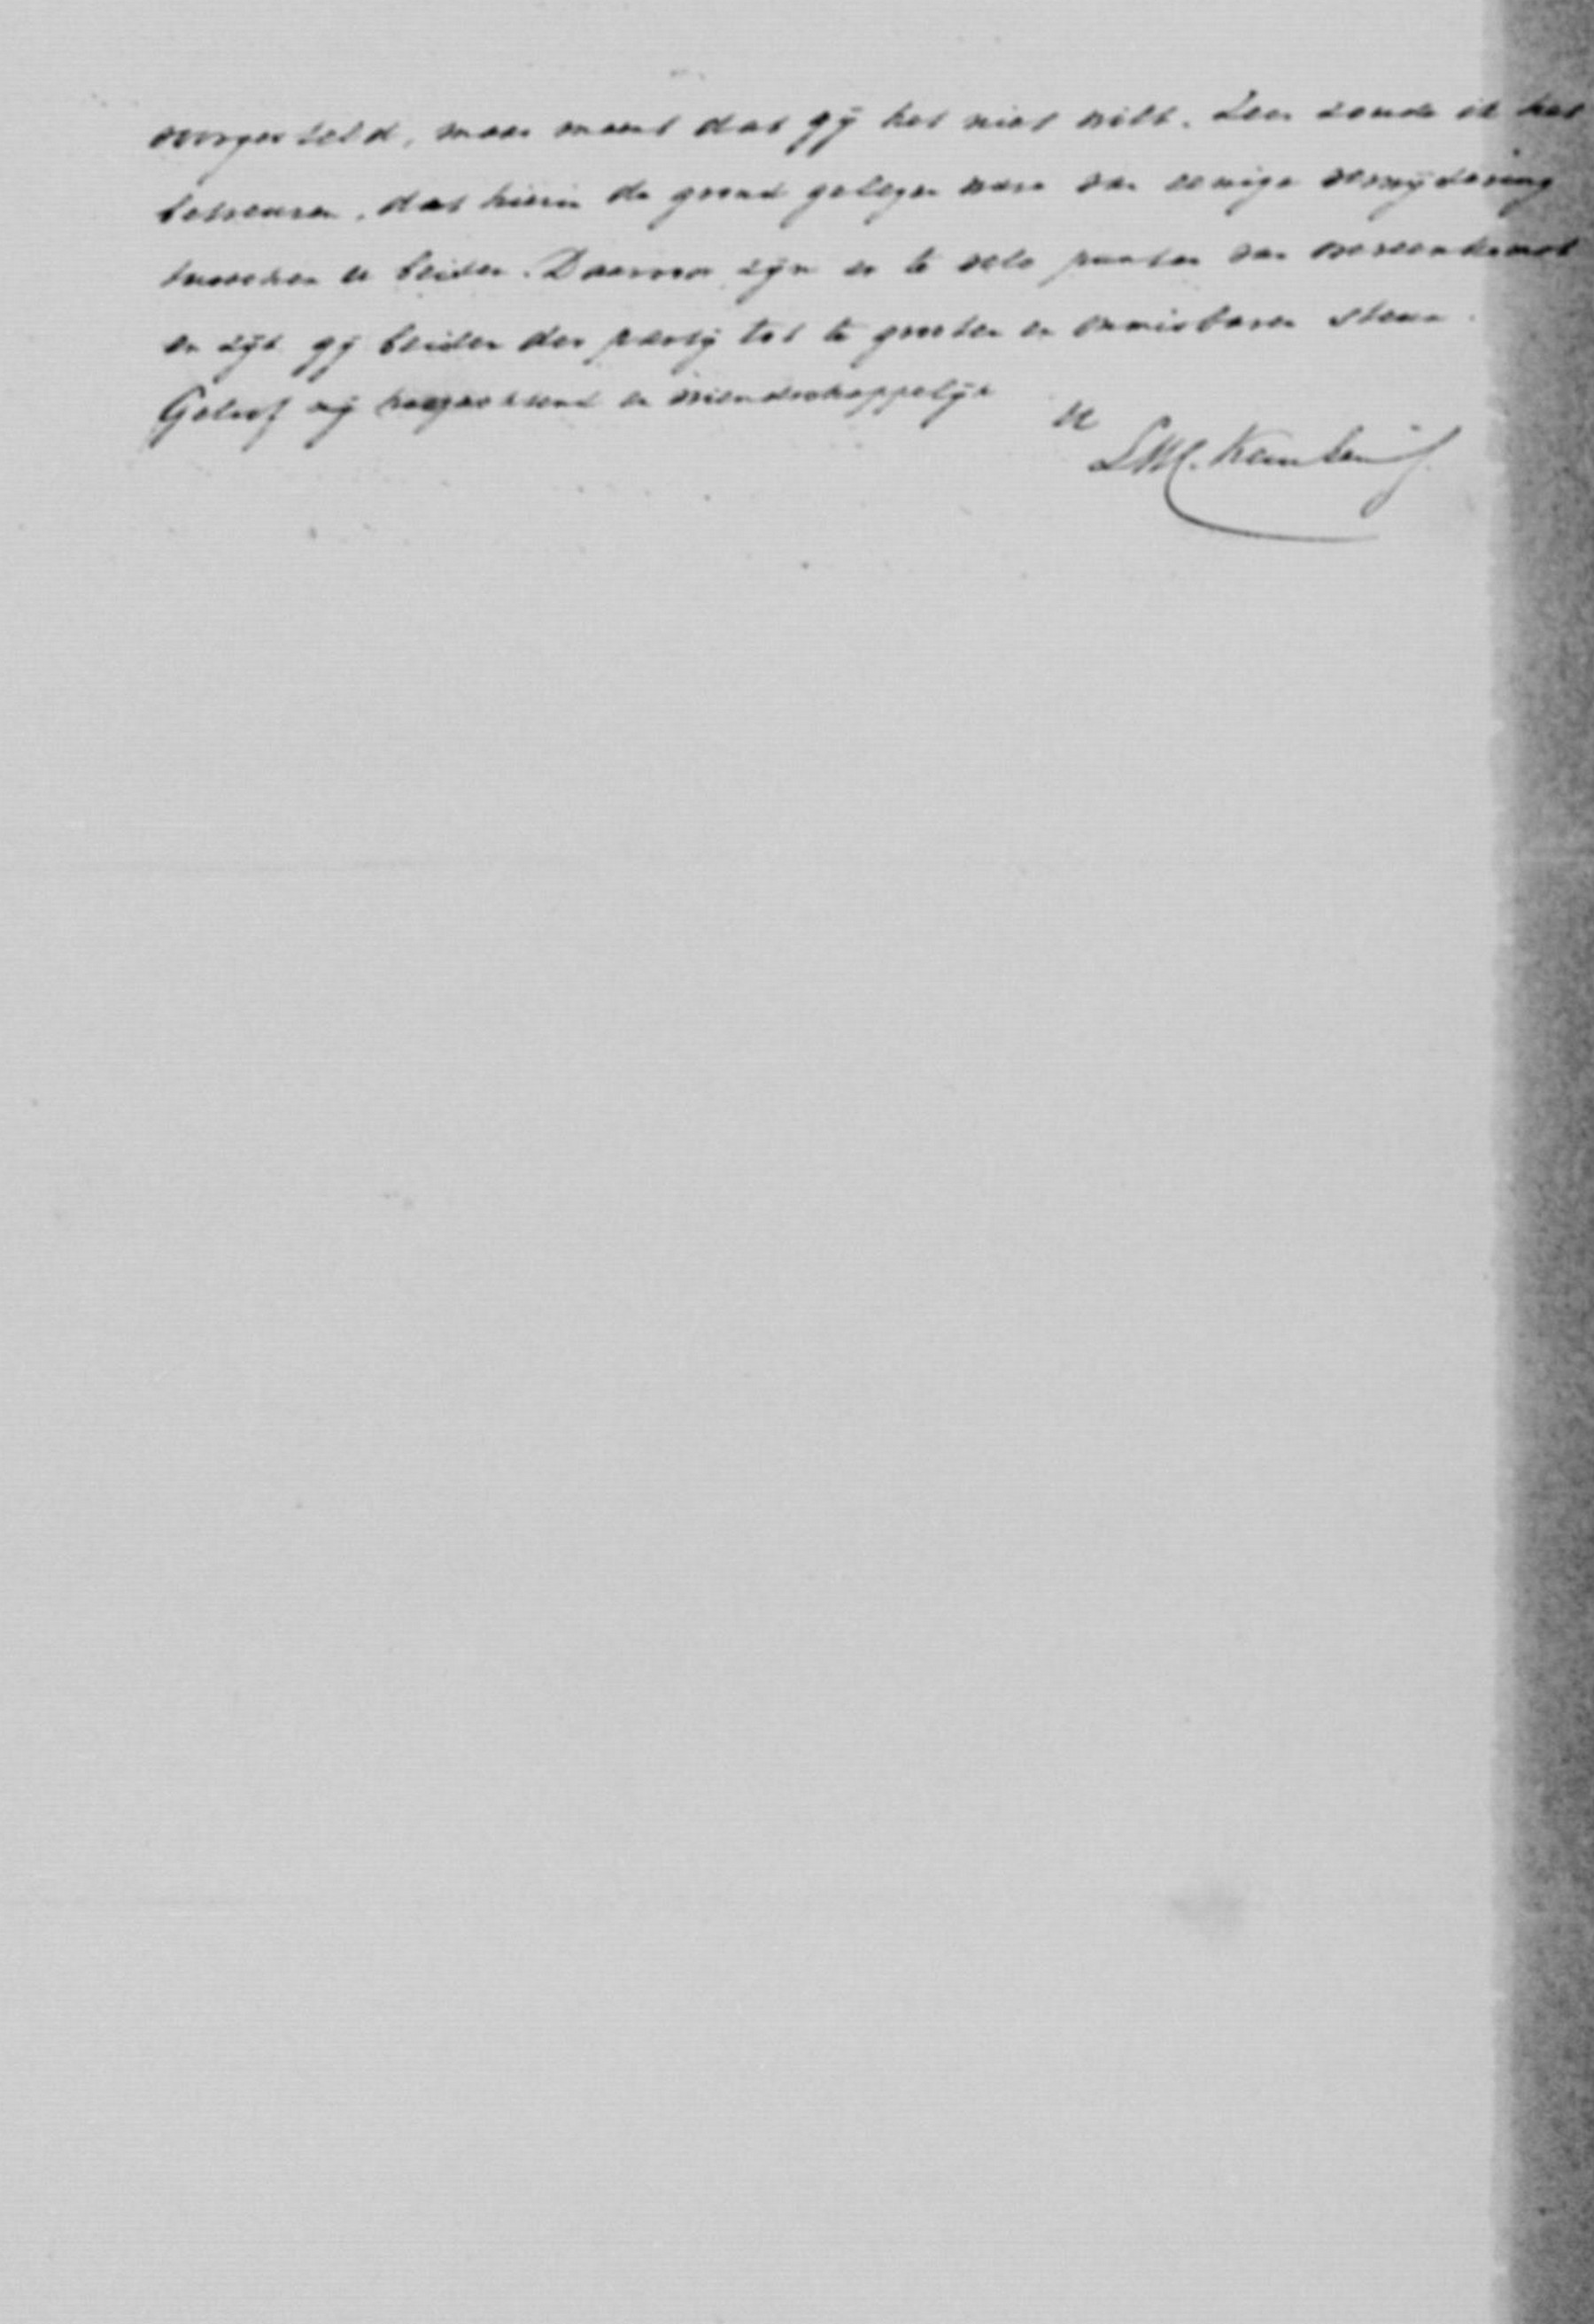 voorgesteld, maar meent dat gij het niet wilt. Zeer zoude ik het
betreuren, dat hierin de grond gelegen ware van eenige verwijdering
tusschen u beiden. Daarvoor zijn er te vele punten van overeenkomst
en zijt gij beiden der partij tot te grooten en onmisbaren steun.
Geloof mij hoogachtend en vriendschappelijk
U